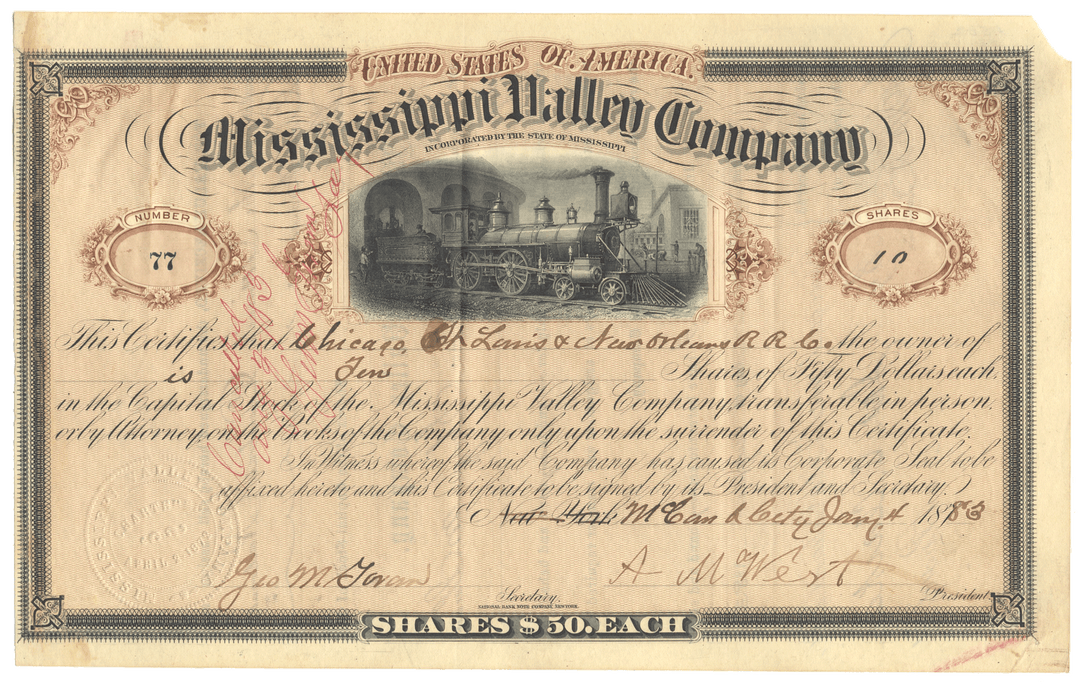 UNITED STATES OF AMERICA.
Mississippi Valley Company
INCORPORATED BY THE STATE OF MISSISSIPPI
NUMBER
77
SHARES
10
This Certifies that Chicago, St Louis & New Orleans R R Co. the owner of
is Ten Shares of Fifty Dollars each
in the Capital Stock of the Mississippi Valley Company, transferable in person
or by Attorney on the Books of the Company only upon the surrender of this Certificate.
In Witness whereof the said Company has caused its Corporate Seal to be
affixed hereto and this Certificate to be signed by its President and Secretary.
New York McComb City Jany. 4 1883
Geo M
A M West
Secretary.
President
NATIONAL BANK NOTE COMPANY, NEW YORK.
SHARES $50. EACH
Cancelled
MISSISSIPPI VALLEY
CHARTERED